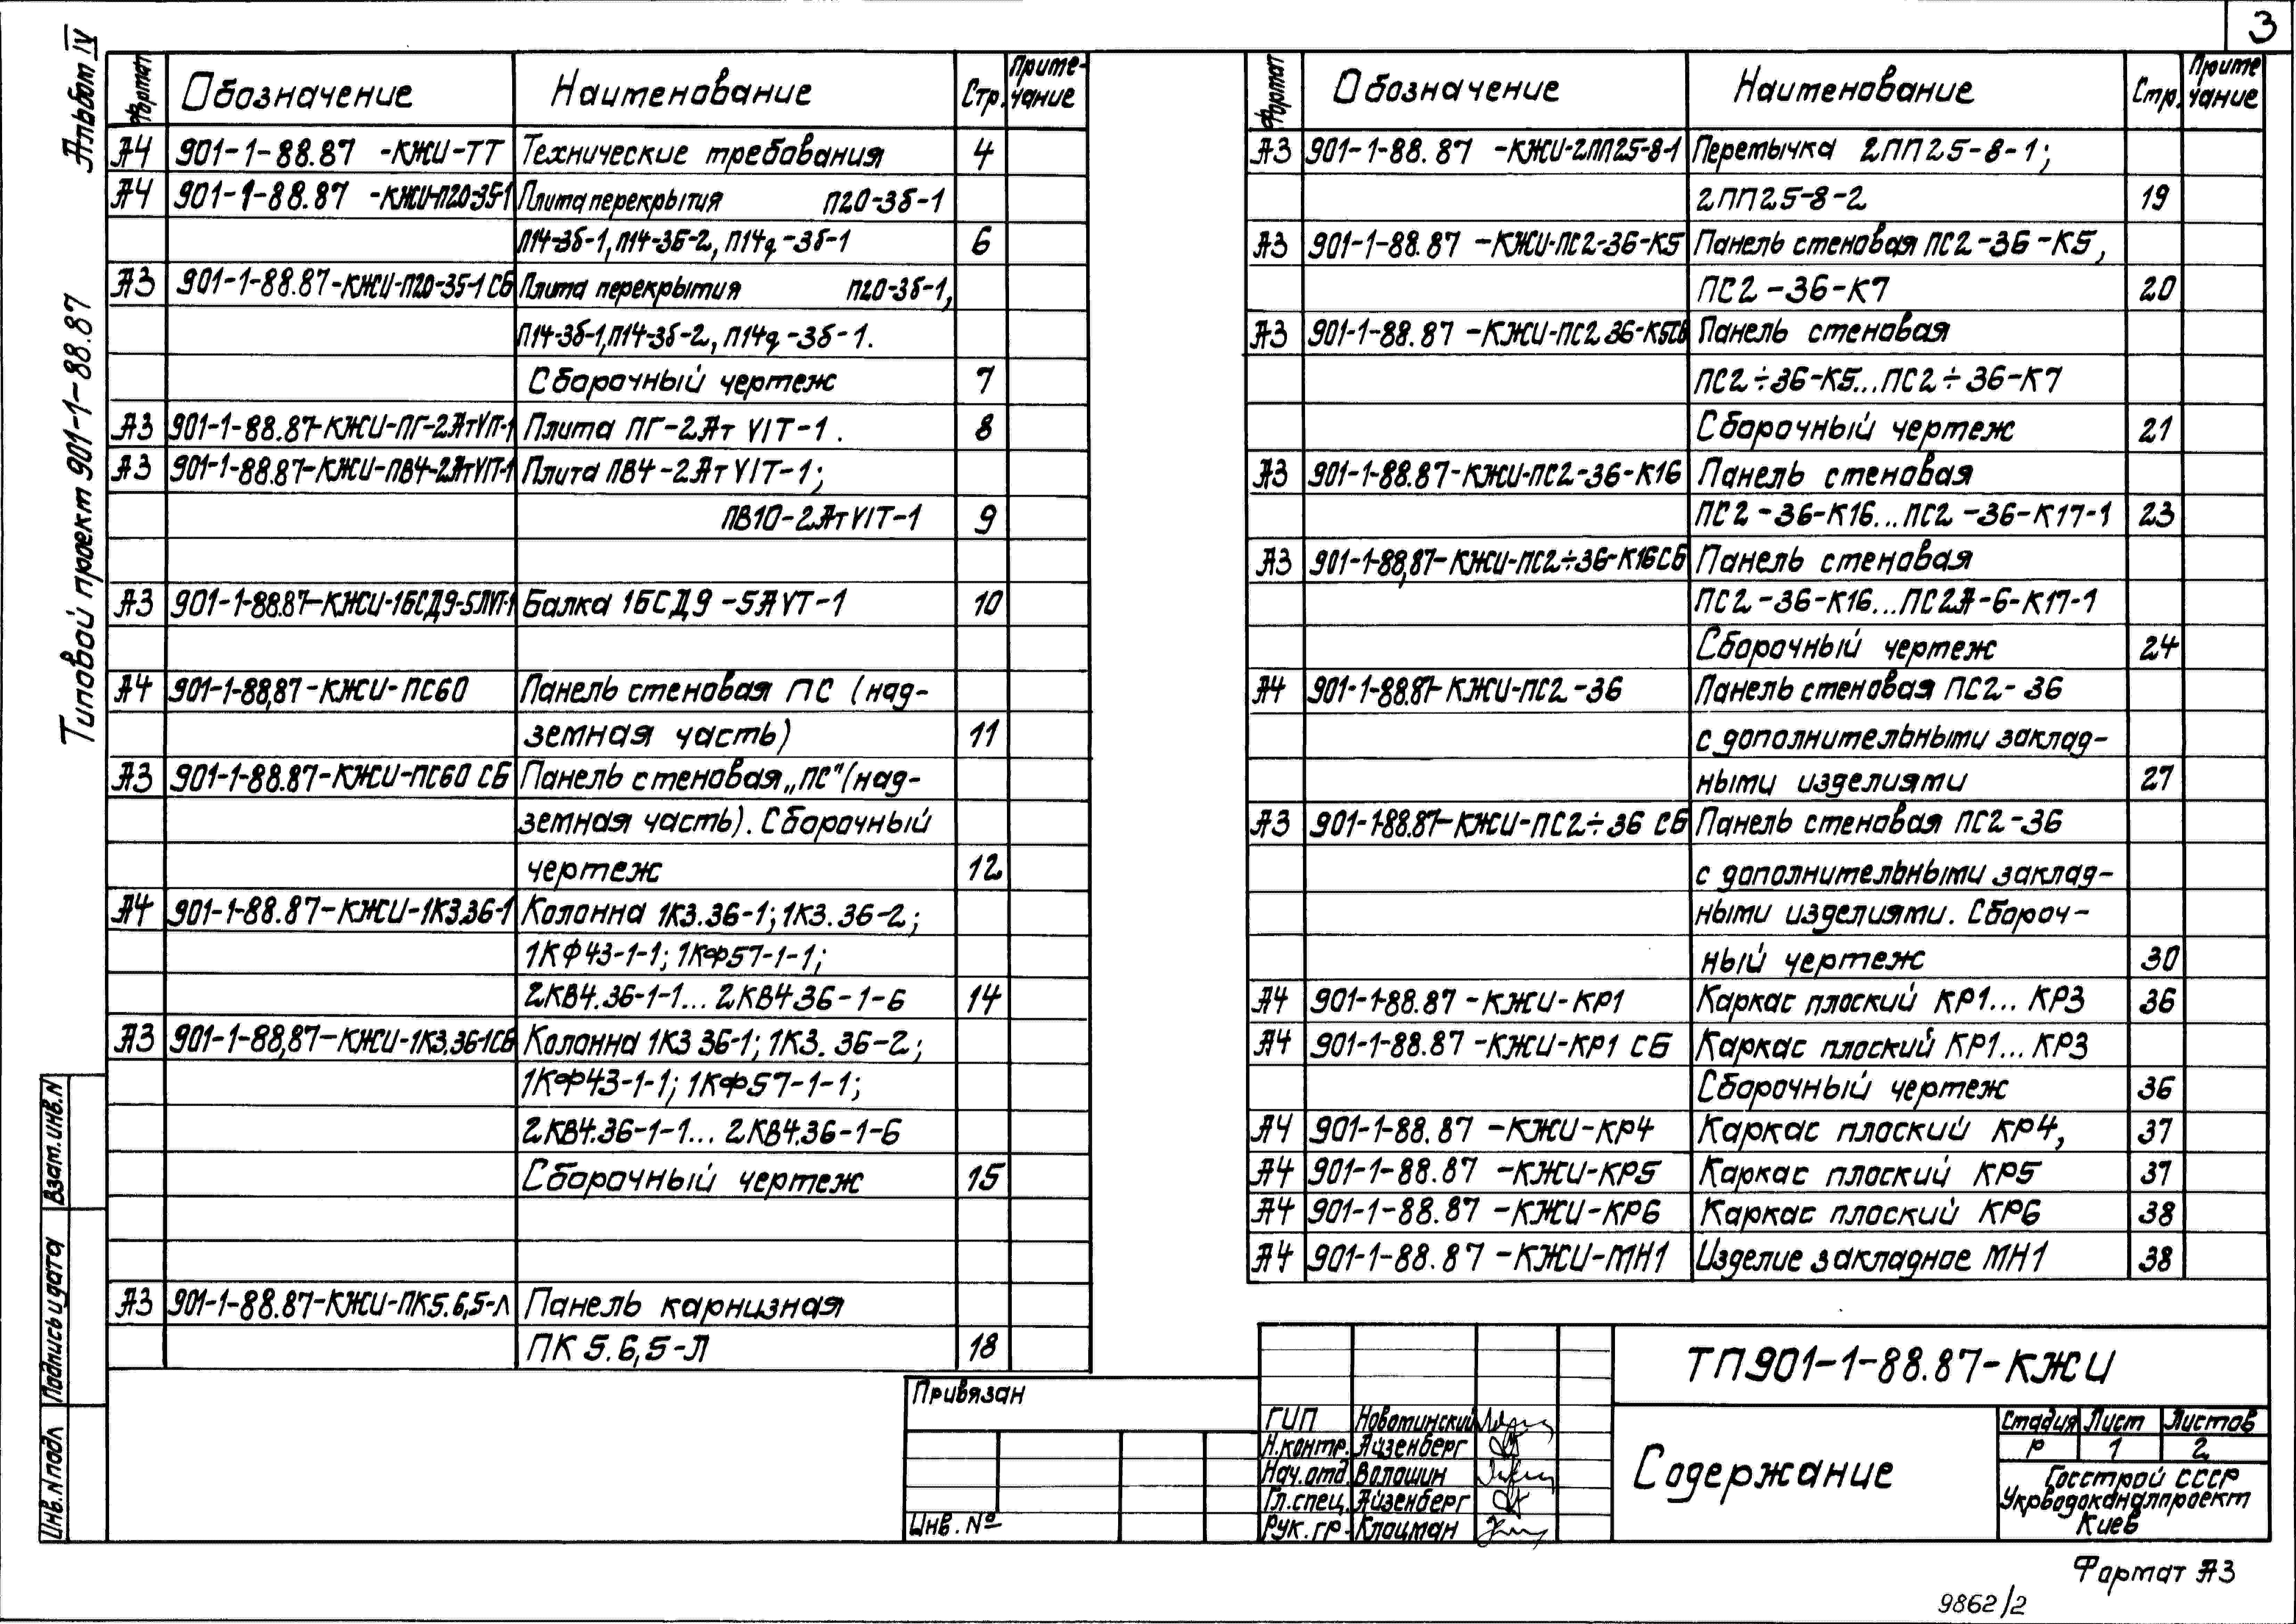 3
Альбом IV
Типовой проект 901-1-88.87
Формат Обозначение Наименование Стр. Приме-чание
А4 901-1-88.87 -КЖИ-ТТ Технические требования 4
А4 901-1-88.87 -КЖИ-П20-35-1 Плита перекрытия П20-3б-1
П14-3б-1, П14-3б-2, П14д-3б-1 6
А3 901-1-88.87-КЖИ-П20-35-1 СБ Плита перекрытия П20-3б-1,
П14-3б-1, П14-3б-2, П14д-3б-1.
Сборочный чертеж 7
А3 901-1-88.87-КЖИ-ПГ-2АтVIТ-1 Плита ПГ-2Ат VIТ-1. 8
А3 901-1-88.87-КЖИ-ПВ4-2АтVIТ-1 Плита ПВ4-2Ат VIТ-1;
ПВ10-2Ат VIТ-1 9
А3 901-1-88.87-КЖИ-1БСД9-5АVТ-1 Балка 1БСД9-5АVТ-1 10
А4 901-1-88,87-КЖИ-ПС60 Панель стеновая ПС (над-
земная часть) 11
А3 901-1-88.87-КЖИ-ПС60 СБ Панель стеновая „ПС" (над-
земная часть). Сборочный
чертеж 12
А4 901-1-88.87-КЖИ-1К3.36-1 Колонна 1К3.36-1; 1К3.36-2;
1КФ43-1-1; 1КФ57-1-1;
2КВ4.36-1-1... 2КВ436-1-6 14
А3 901-1-88,87-КЖИ-1К3.36-1СБ Колонна 1К3 36-1; 1К3. 36-2;
1КФ43-1-1; 1КФ57-1-1;
2КВ4.36-1-1... 2КВ4.36-1-6
Сборочный чертеж 15
А3 901-1-88.87-КЖИ-ПК5.6,5-Л Панель карнизная
ПК 5.6,5-Л 18
Формат Обозначение Наименование Стр. Приме чание
А3 901-1-88.87 -КЖИ-2ПП25-8-1 Перемычка 2ПП25-8-1;
2ПП25-8-2 19
А3 901-1-88.87 -КЖИ-ПС2-36-К5 Панель стеновая ПС2-36-К5,
ПС2-36-К7 20
А3 901-1-88.87 -КЖИ-ПС2 36-К5СБ Панель стеновая
ПС2÷36-К5...ПС2÷36-К7
Сборочный чертеж 21
А3 901-1-88.87-КЖИ-ПС2-36-К16 Панель стеновая
ПС2-36-К16...ПС2-36-К17-1 23
А3 901-1-88,87-КЖИ-ПС2÷36-К16СБ Панель стеновая
ПС2-36-К16...ПС2А-6-К17-1
Сборочный чертеж 24
А4 901-1-88.87-КЖИ-ПС2-36 Панель стеновая ПС2-36
с дополнительными заклад-
ными изделиями 27
А3 901-1-88.87-КЖИ-ПС2÷36 СБ Панель стеновая ПС2-36
с дополнительными заклад-
ными изделиями. Сбороч-
ный чертеж 30
А4 901-1-88.87 -КЖИ-КР1 Каркас плоский КР1... КР3 36
А4 901-1-88.87 -КЖИ-КР1 СБ Каркас плоский КР1... КР3
Сборочный чертеж 36
А4 901-1-88.87 -КЖИ-КР4 Каркас плоский КР4, 37
А4 901-1-88.87 -КЖИ-КР5 Каркас плоский КР5 37
А4 901-1-88.87 -КЖИ-КР6 Каркас плоский КР6 38
А4 901-1-88.87 -КЖИ-МН1 Изделие закладное МН1 38
Взам.инв.N
Подпись и дата
Инв.N подл
Привязан
Инв. №
ТП901-1-88.87-КЖИ
ГИП Новотинский
Н.контр. Айзенберг
Нач.отд. Волошин
Гл.спец. Айзенберг
Рук.гр. Клоцман
Содержание
Стадия Лист Листов
Р 1 2
Госстрой СССР
Укрводоканалпроект
Киев
Формат А3
9862/2